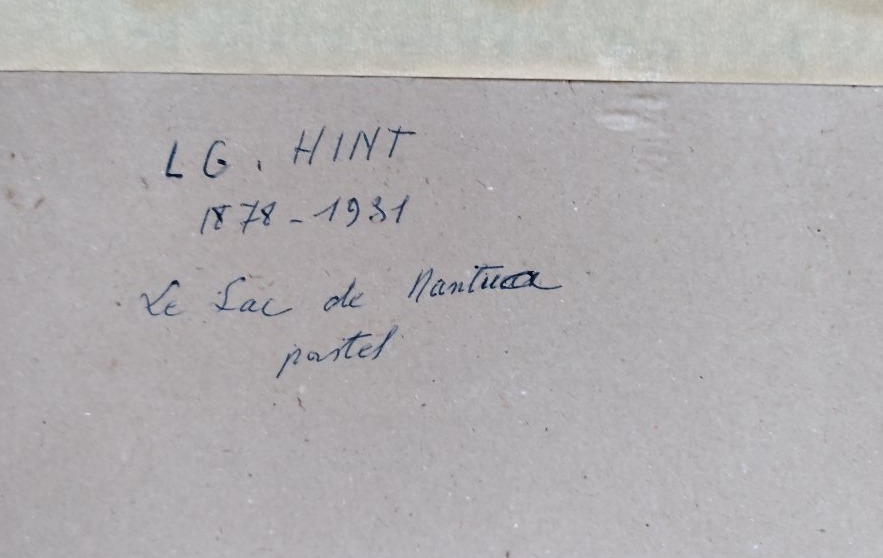 LG. HINT
1878-1931
Le Lac de Nantua
pastel